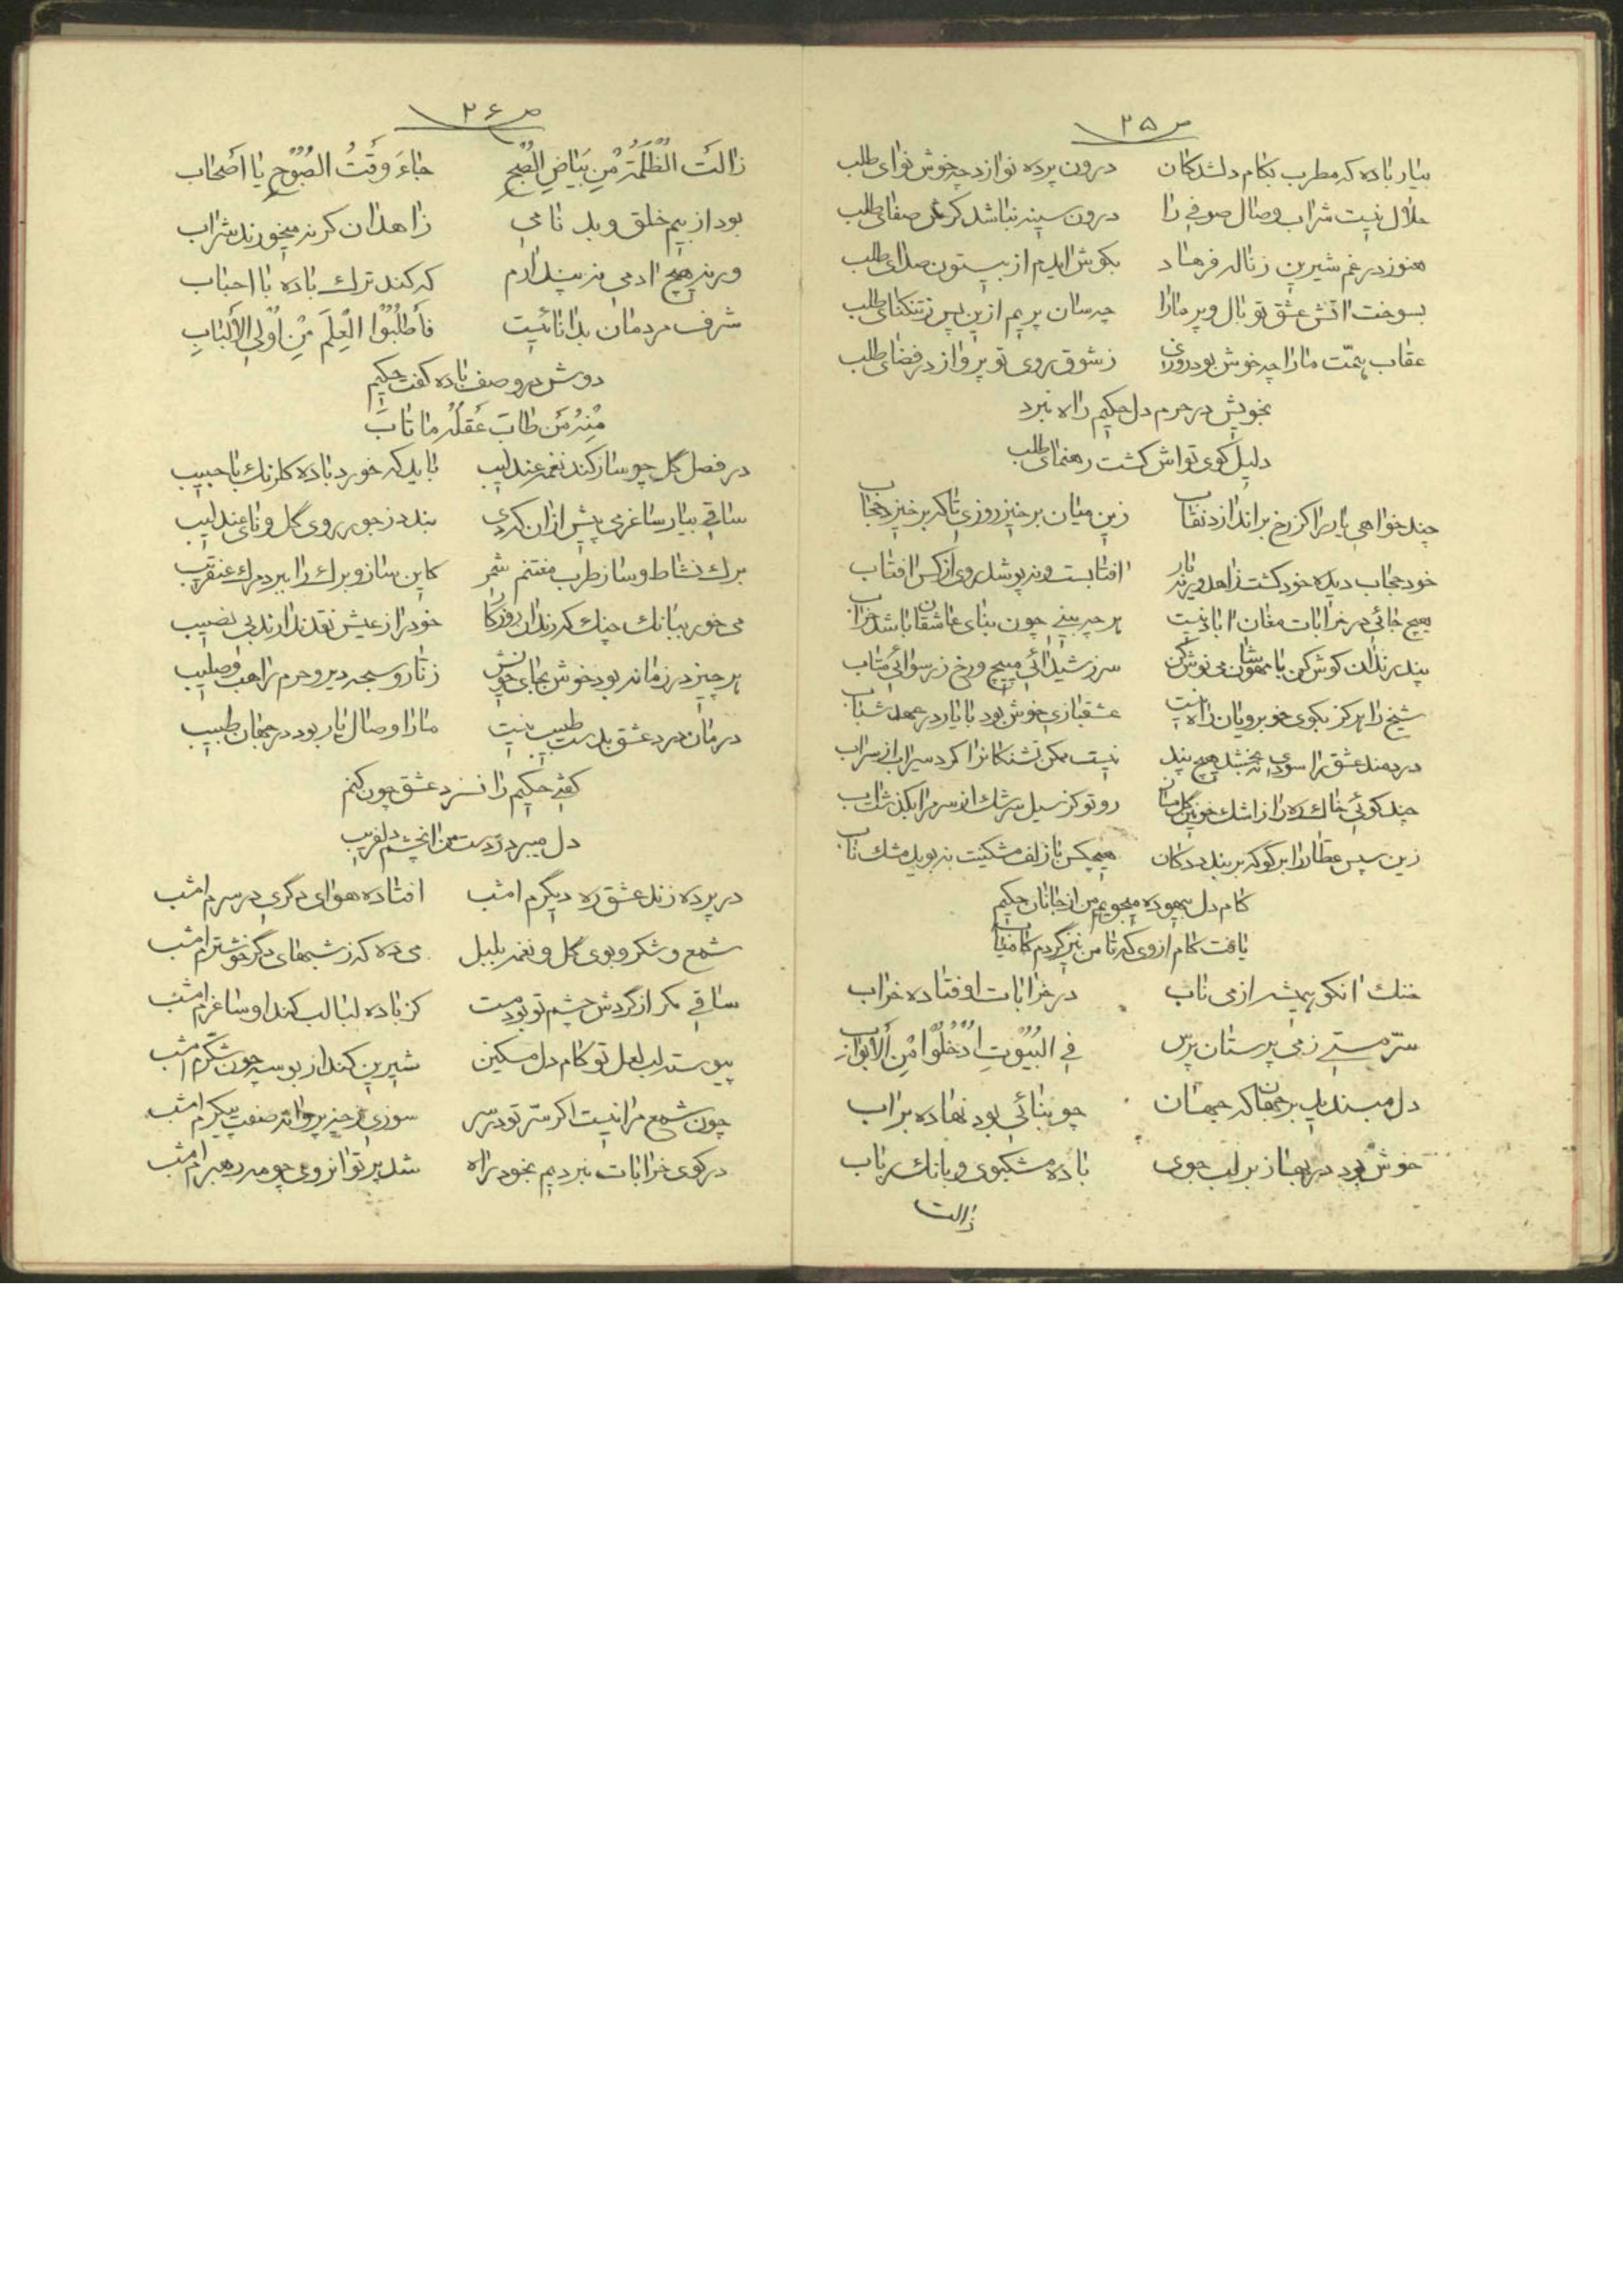 ص ۲۵
بیار باده که مطرب بکام دلشدکان درون پرده نوازد چه خوش نوای طلب
حلال نیست شراب وصال صوفی را درون سینه نباشد کرش صفای طلب
هنوز در غم شیرین ز ناله فرهاد بکوش ایدم از بیستون صدای طلب
بسوخت اتش عشق تو بال و پر مارا چه سان پریم ازین پس ز تنکنای طلب
عقاب همّت مارا چه خوش بود روزی ز شوق روی تو پرواز در فضای طلب
بخویش در حرم دل حکیم راه نبرد
دلیل کوی تواش کشت رهنمای طلب
چند خواهی یار را کز رخ براندازد نقاب زین میان برخیز روزی تا که برخیزد حجاب
خود حجاب دیده خود کشت زاهد ورنه یار افتابست و نپوشد روی از کس افتاب
هیچ جائی در خرابات مغان اباد نیست هر چه بینی چون بنای عاشقان باشد خراب
پند رندان کوش کن با مهوشان می نوش کن سر ز شیدائی مپیچ و رخ ز رسوائی متاب
شیخ را هرکز بکوی خوبرویان راه نیست عشقبازی خوش بود با یار در عهد شباب
دردمند عشق را سودی نبخشد هیچ پند نیست ممکن تشنکانرا کرد سیراب از سراب
چند کوئی خاک ره را از اشک خونین کل مسان رو تو کز سیل سرشک از سر مرا بکذشت اب
زین سپس عطار را بر کو که بر بندد دکان هیچکس با زلف مشکینت نبوید مشک ناب
کام دل بیهوده میجویم من از جانان حکیم
یافت کام از وی که تا من نیز کردم کامیاب
خنک انکو همیشه از می ناب در خرابات اوفتاده خراب
سرّ مستی ز می پرستان پرس فِی الْبُیُوتِ ادْخُلُوا مِنَ الْأَبْوَابِ
دل مبند ای پسر بر جهان که جهان چو بنائی بود نهاده بر اب
خوش بود در بهار بر لب جوی باده مشکبوی و بانک رباب
زالت
ص ۲۶
زالَتِ الظُّلْمَةُ مِنْ بَیَاضِ الصُّبْحِ جَاءَ وَقْتُ الصَّبُوحِ یَا أَصْحَاب
بود از بیم خلق و بد نامی زاهدان کر نه میخورند شراب
ورنه هیچ ادمی نپندارم که کند ترک باده با احباب
شرف مردمان بدانائیست فَاطْلُبُوا الْعِلْمَ مِنْ أُولِی الْأَلْبَابِ
دوش در وصف باده کفت حکیم
مِنْهُ مَنْ طَابَ عَقْلُهُ مَا تَابَ
در فصل گل چو ساز کند نغمه عندلیب باید که خورد باده کلرنک با حبیب
ساقی بیار ساغر می پیش از ان که دی بندد ز جور روی گل و نای عندلیب
برک نشاط و ساز طرب مغتنم شمر کاین ساز و برک را ببرد مرک عنقریب
می خور ببانک چنک که رندان روزکار خود را ز عیش نقد ندارند بی نصیب
هر چیز در زمانه بود خوش بجای خویش زنّار و سبحه دیر و حرم راهب و صلیب
درمان درد عشق بدست طبیب نیست مارا وصال یار بود در جهان طبیب
کفتی حکیم را نسزد عشق چون کنم
دل میبرد ز دست من ان چشم دلفریب
در پرده زند عشق ره دیگرم امشب افتاده هوای دکری در سرم امشب
شمع و شکر و بوی گل و نغمه بلبل می ده که ز شبهای دکر خوشترم امشب
ساقی مکر از گردش چشم تو بود مست کز باده لبالب کند او ساغرم امشب
پیوسته لب لعل تو کام دل مسکین شیرین کند از بوسه چون شکّرم امشب
چون شمع مرا نیست اکر سرّ تو در سر سوزی ز چه پروانه صفت پیکرم امشب
در کوی خرابات نبردیم بخود راه شد پرتو انروی چو مه رهبرم امشب